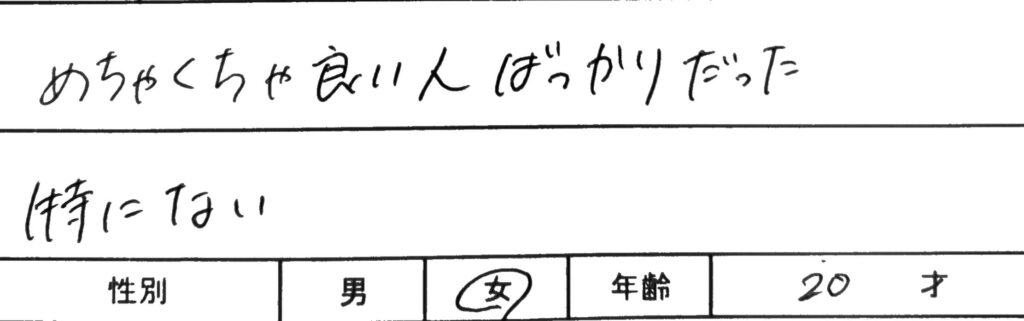 めちゃくちゃ良い人ばっかりだった
特にない
性別 男 女 年齢 20 才